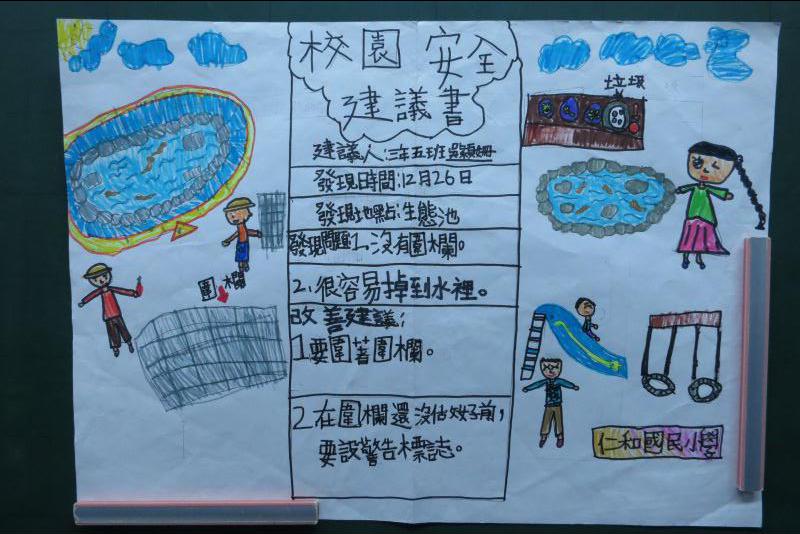 校園 安全
建議書
建議人:三年五班
發現時間:12月26日
發現地點:生態池
發現問題1.沒有圍欄。
2.很容易掉到水裡。
改善建議:
1.要圍著圍欄。
2在圍欄還沒估好前,
要設警告標誌。
圍欄
垃圾
仁和國民小學